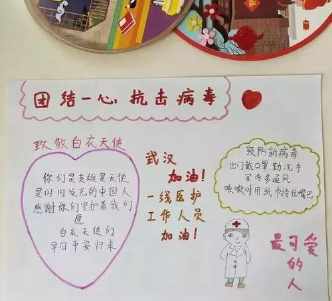 团结一心,抗击病毒
致敬白衣天使
你们是英雄是天使
是时时发光的中国人
感谢你们守护着我们
愿
白衣天使们
平平安安归来
武汉
加油!
一线医护
工作人员
加油!
预防新病毒
出门戴口罩勤洗手
室内多通风
咳嗽时用纸巾捂住嘴巴
最可爱
的人